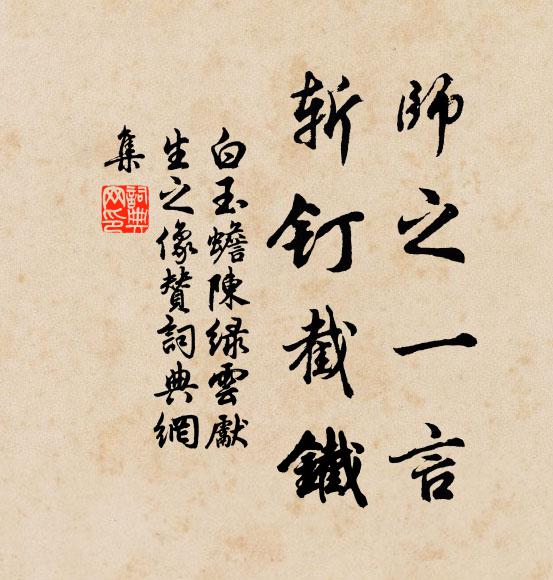 師之一言
斬釘截鐵
白玉蟾陳緑雲獻
生之像賛詞典網
集
詞典
网印